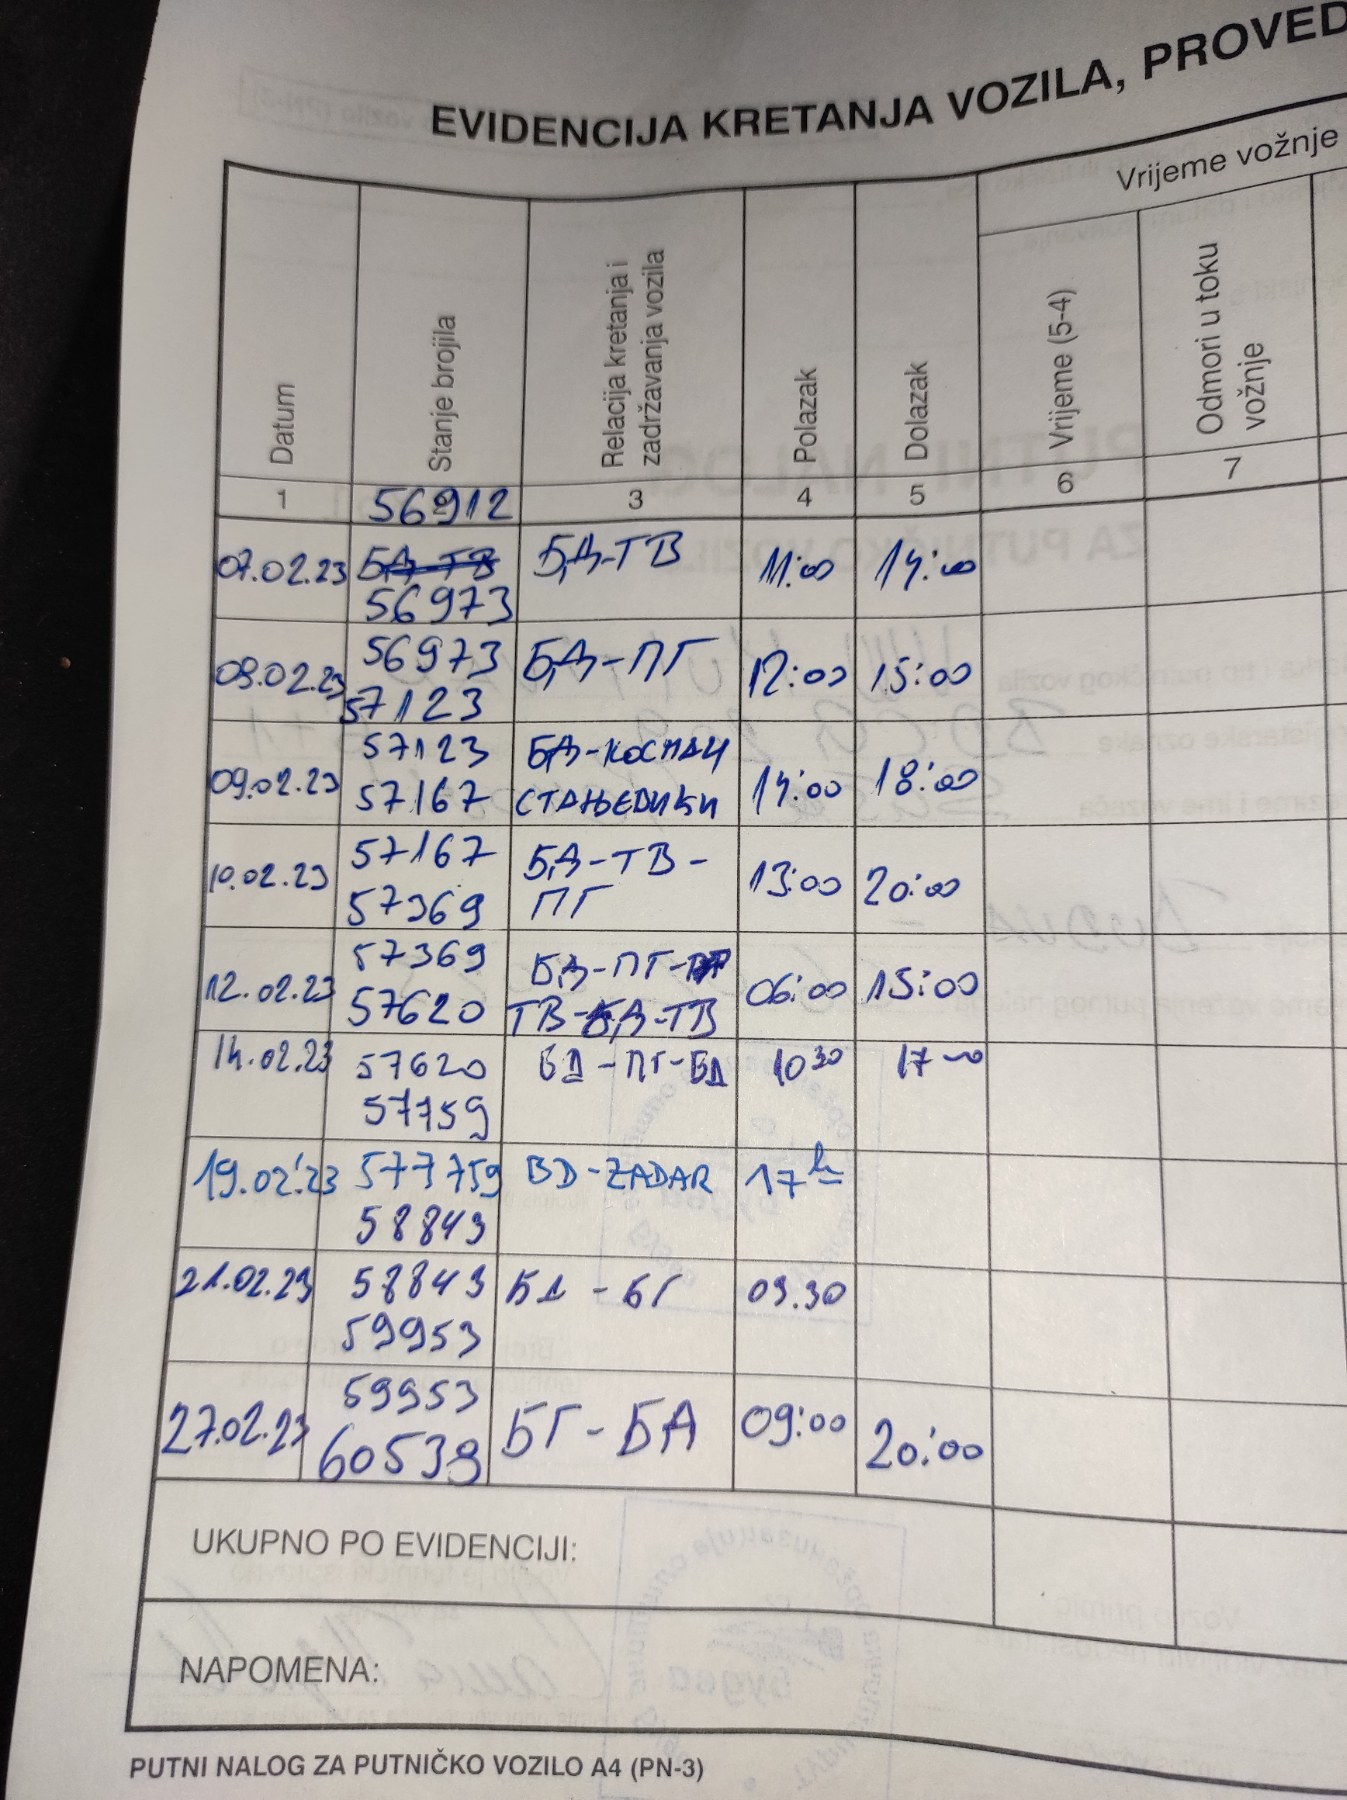 EVIDENCIJA KRETANJA VOZILA, PROVED
Datum
Stanje brojila
Relacija kretanja i
zadržavanja vozila
Polazak
Dolazak
Vrijeme vožnje
Vrijeme (5-4)
Odmori u toku
vožnje
1 56912 3 4 5 6 7
07.02.23 БД-ТВ БД-ТВ 11:00 14:00
56973
08.02.23 56973 БД-ПГ 12:00 15:00
57123
09.02.23 57123 БД-КОСПАЧ 14:00 18:00
57167 СТАЊЕВИЋИ
10.02.23 57167 БД-ТВ- 13:00 20:00
57369 ПГ
12.02.23 57369 БД-ПГ- 06:00 15:00
57620 ТВ-БД-ТВ
14.02.23 57620 БД-ПГ-БД 10 30 17 00
57759
19.02.23 577759 BD-ZADAR 17 h
58843
21.02.23 58843 БД - БГ 09.30
59953
27.02.23 59953 БГ-БА 09:00 20:00
60539
UKUPNO PO EVIDENCIJI:
NAPOMENA:
PUTNI NALOG ZA PUTNIČKO VOZILO A4 (PN-3)